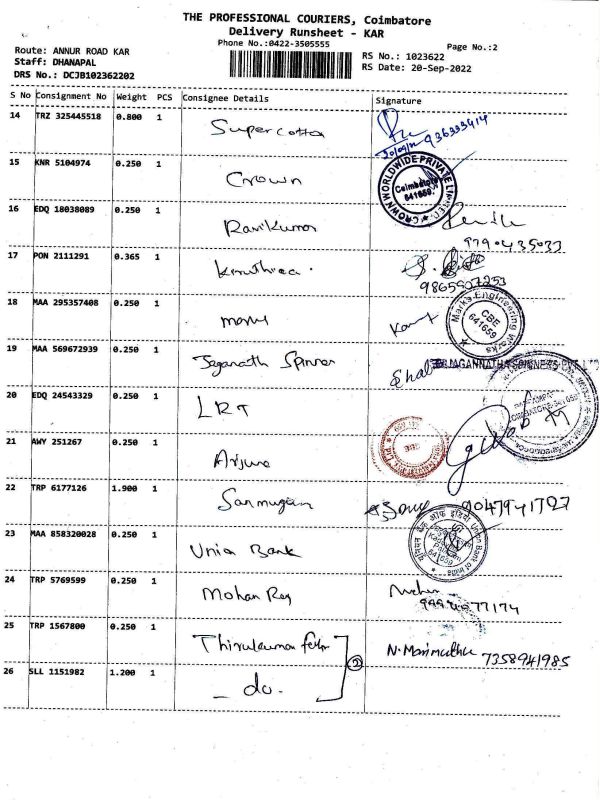 THE PROFESSIONAL COURIERS, Coimbatore
Delivery Runsheet - KAR
Phone No.:0422-3505555
Page No.:2
Route: ANNUR ROAD KAR
RS No.: 1023622
Staff: DHANAPAL
RS Date: 20-Sep-2022
DRS No.: DCJB102362202
S No Consignment No Weight PCS Consignee Details Signature
14 TRZ 325445518 0.800 1 Supercotta
15 KNR 5104974 0.250 1 Crown
CROWN WORLDWIDE PRIVATE LIMITED
Coimbatore
641659.
16 EDQ 18038089 0.250 1 Ravikumar
9790435033
17 PON 2111291 0.365 1
9865907253
18 MAA 295357408 0.250 1
Mark's Engineering Works
CBE
641659
19 MAA 569672939 0.250 1 Jeganath Spinner
JAGANNATHA SPINNERS
20 EDQ 24543329 0.250 1 LRT
21 AWY 251267 0.250 1 Arjuna
22 TRP 6177126 1.900 1 Sanmugam
23 MAA 858320028 0.250 1 Union Bank
Union Bank of India
641659
24 TRP 5769599 0.250 1 Mohan Raj
25 TRP 1567800 0.250 1 Thirukumar
N. Marimuthu 7358941985
26 SLL 1151982 1.200 1 - do. 2